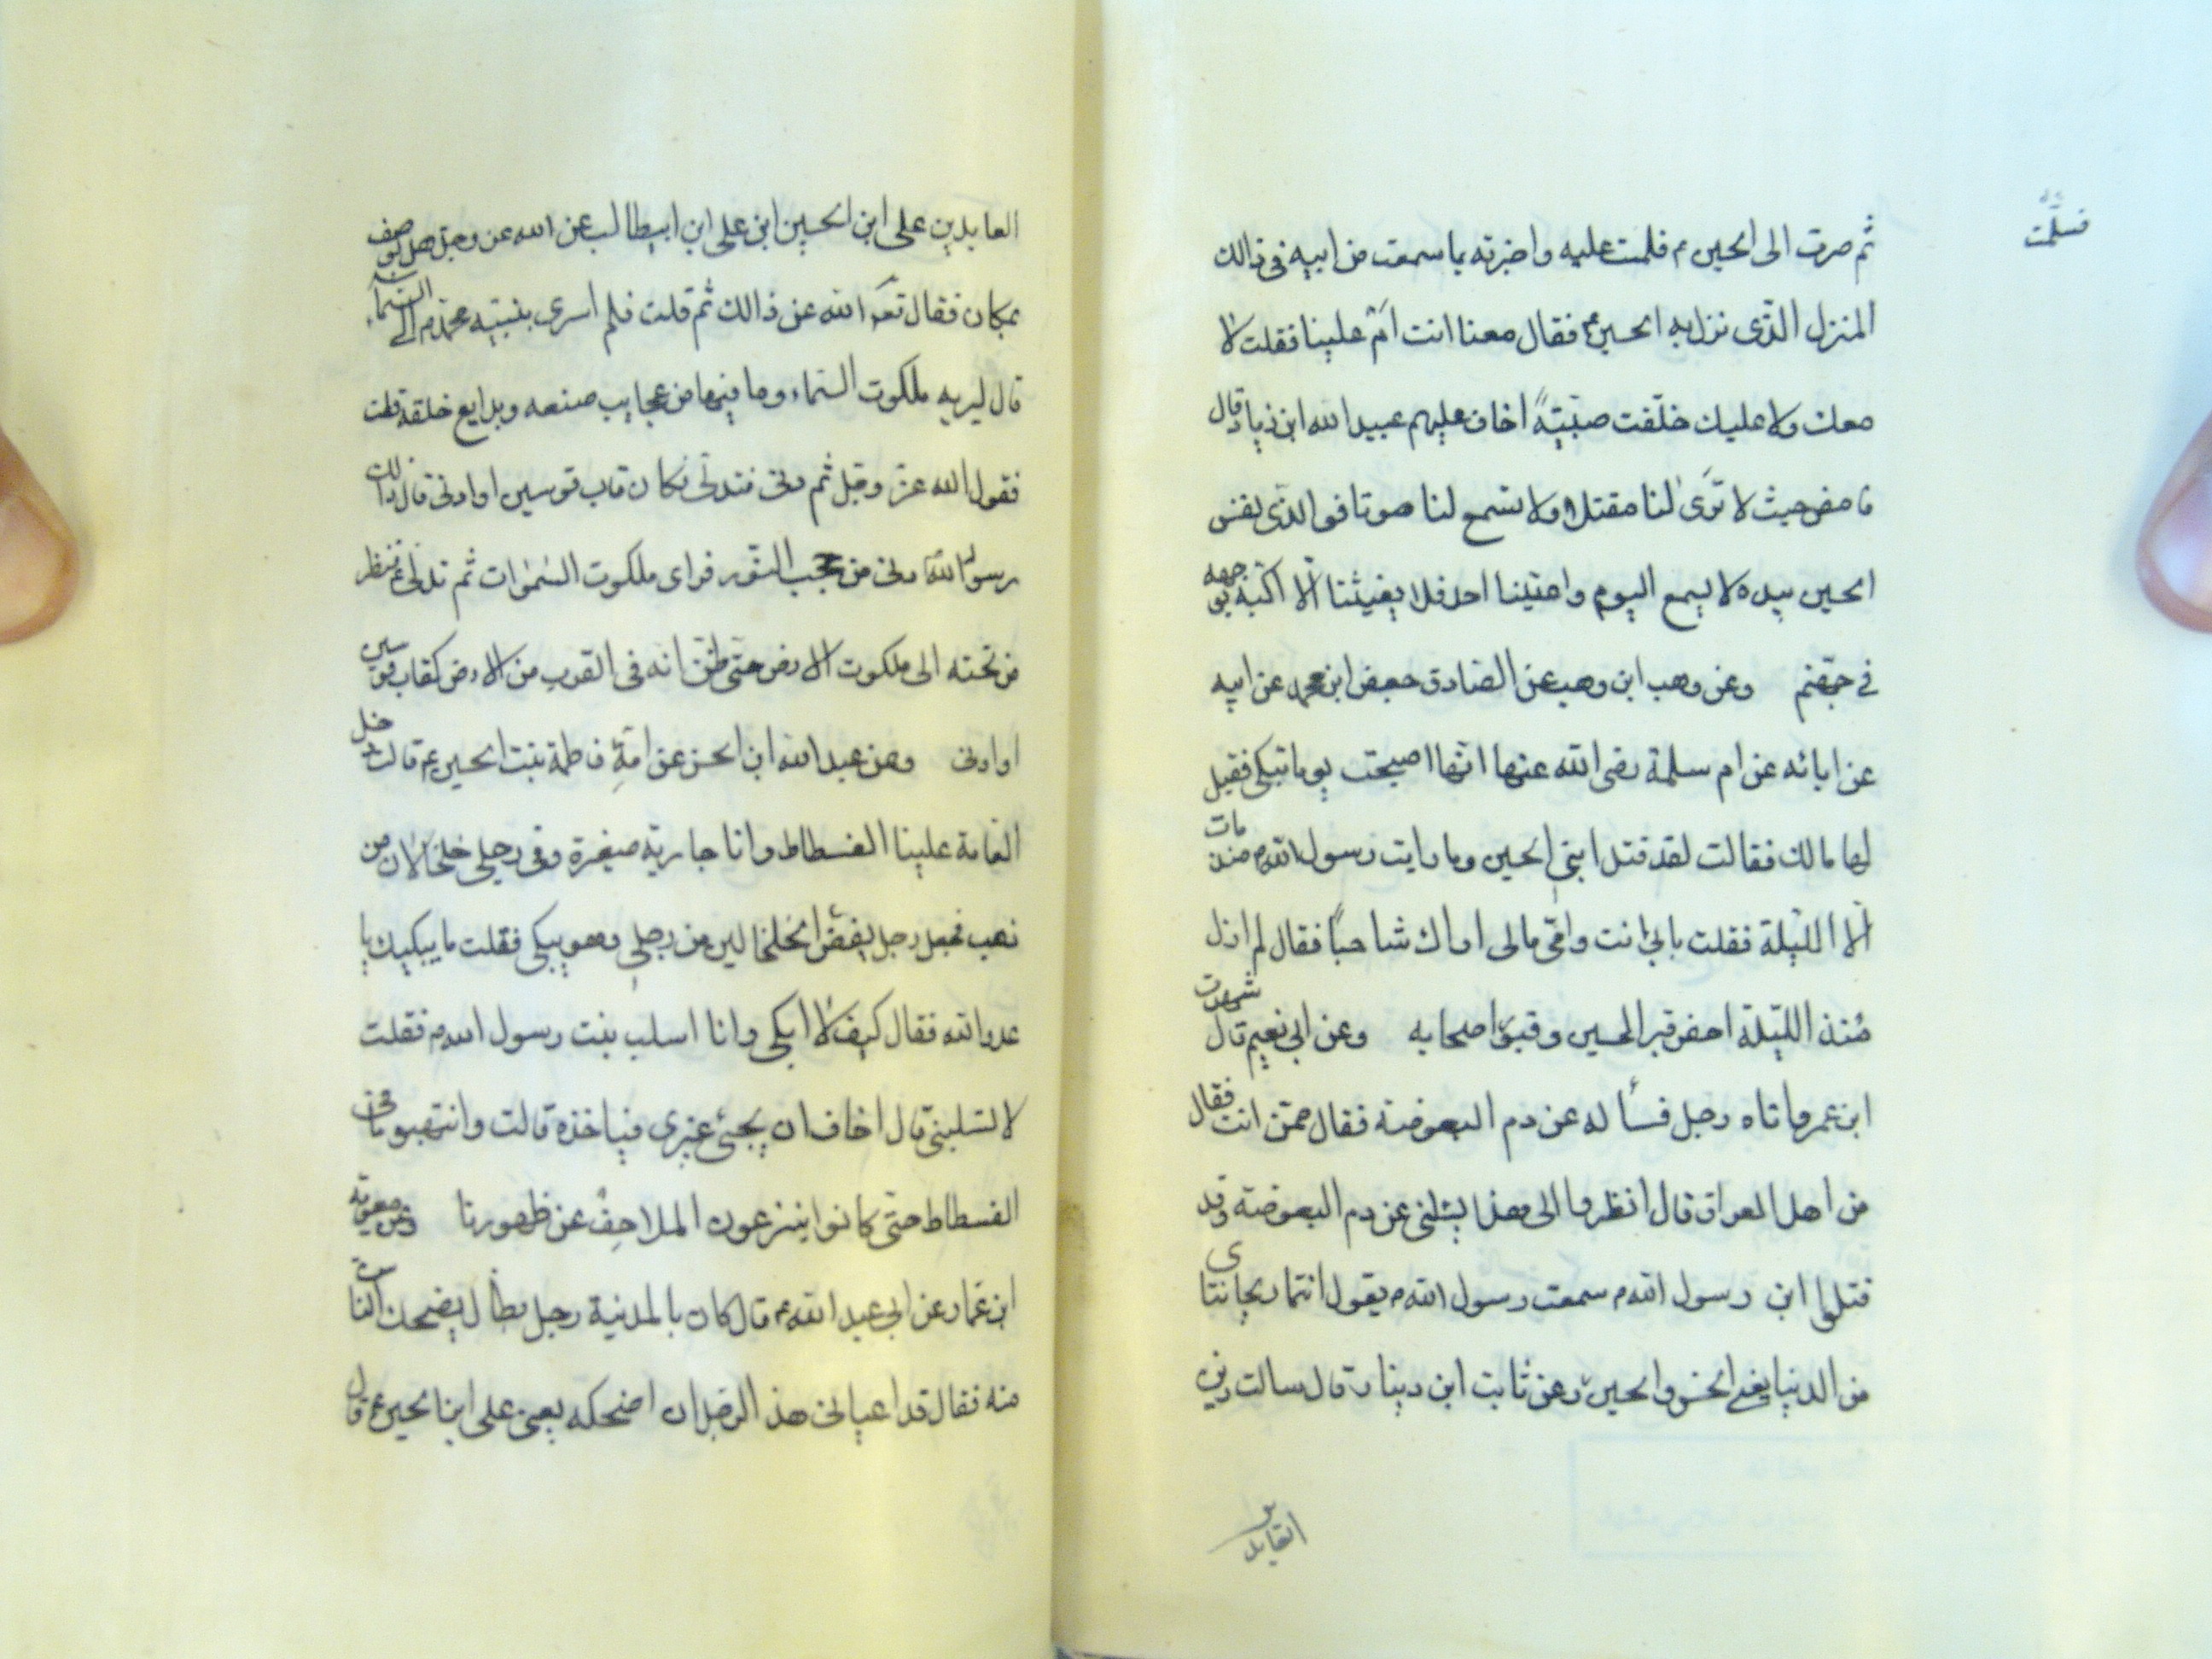 فسلمت
ثم صرت الى الحسين م فلمت عليه واخبرته بما سمعت من ابيه فى ذالك
المنزل الذى نزل به الحسين ع فقال معنا انت ام علينا فقلت لا
معك ولا عليك خلفت صبية اخاف عليهم عبيد الله ابن زياد قال
فامض حيث لا ترى لنا مقتلا ولا تسمع لنا صوتا فو الذى نفس
الحسين بيده لا يسمع اليوم واعيتنا احد فلا يغيثنا الا اكبه بوجهه
في جهنم وعن وهب ابن وهب عن الصادق جعفر ابن محمد عن ابيه
عن ابائه عن ام سلمة رضى الله عنها انها اصبحت يوما تبكى فقيل
لها مالك فقالت لقد قتل ابنى الحسين وما رايت رسول الله م منذ مات
الا الليلة فقلت بابى انت وامى مالى اراك شاحبا فقال لم ازل
منذ الليلة احفر قبر الحسين وقبور اصحابه وعن ابى نعيم قال شهدت
ابن عمر واتاه رجل فسأله عن دم البعوضة فقال ممن انت فقال
من اهل العراق قال انظروا الى هذا يسئلنى عن دم البعوضة وقد
قتلوا ابن رسول الله م سمعت رسول الله م يقول انهما ريحانتاى
من الدنيا يعنى الحسن والحسين ع وعن ثابت ابن دينار قال سالت زين
العابدين
العابدين على ابن الحسين ابن على ابن ابيطالب عن الله عز وجل هل يوصف
بمكان فقال تعالى الله عن ذالك ثم قلت فلم اسرى بنبيه محمد م الى السماء
قال ليريه ملكوت السماء وما فيها من عجايب صنعه وبدايع خلقه قلت
فقول الله عز وجل ثم دنى فتدلى فكان قاب قوسين او ادنى قال ذالك
رسول الله دنى من حجب النور فراى ملكوت السموات ثم تدلى ع فنظر
من تحته الى ملكوت الارض حتى ظن انه فى القرب من الارض كقاب قوسين
او ادنى وعن عبد الله ابن الحسن عن امه فاطمة بنت الحسين ع قالت دخل
العامة علينا الفسطاط وانا جارية صغيرة وفى رجلى خلخالان من
ذهب فجعل رجل يفض الخلخالين من رجلى وهو يبكى فقلت ما يبكيك يا
عدو الله فقال كيف لا ابكى وانا اسلب بنت رسول الله م فقلت
لا تسلبنى قال اخاف ان يجيئ غيرى فياخذه قالت وانتهبوا ما فى
الفسطاط حتى كانوا ينزعون الملاحف عن ظهورنا وعن معوية
ابن عمار عن ابى عبد الله ع قال كان بالمدنية رجل بطال يضحك الناس
منه فقال قد اعيانى هذ الرجل ان اضحكه يعنى على ابن الحسين ع قال